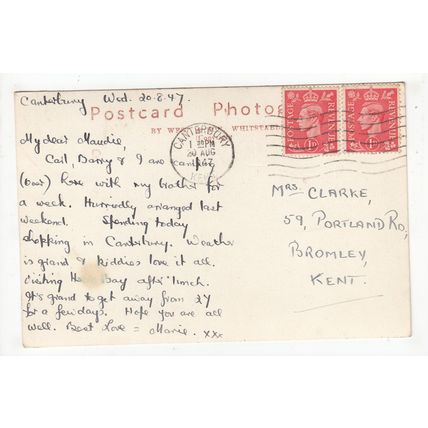 Canterbury Wed. 20.8.47.
Postcard Photog
BY WE WHITSTABLE
CANTERBURY
1 PM
20 AUG
1947
KENT
POSTAGE REVENUE
1D
POSTAGE REVENUE
1D
My dear Maudie,
Carl, Barry & I are camping
(ever) here with my brother for
a week. Hurriedly arranged last
weekend. Spending today
shopping in Canterbury. Weather
is grand & kiddies love it all.
Visiting Bay after lunch.
It's grand to get away from 27
for a few days. Hope you are all
well. Best Love = Marie. xxx
MRS. CLARKE,
59, PORTLAND RD,
BROMLEY,
KENT.